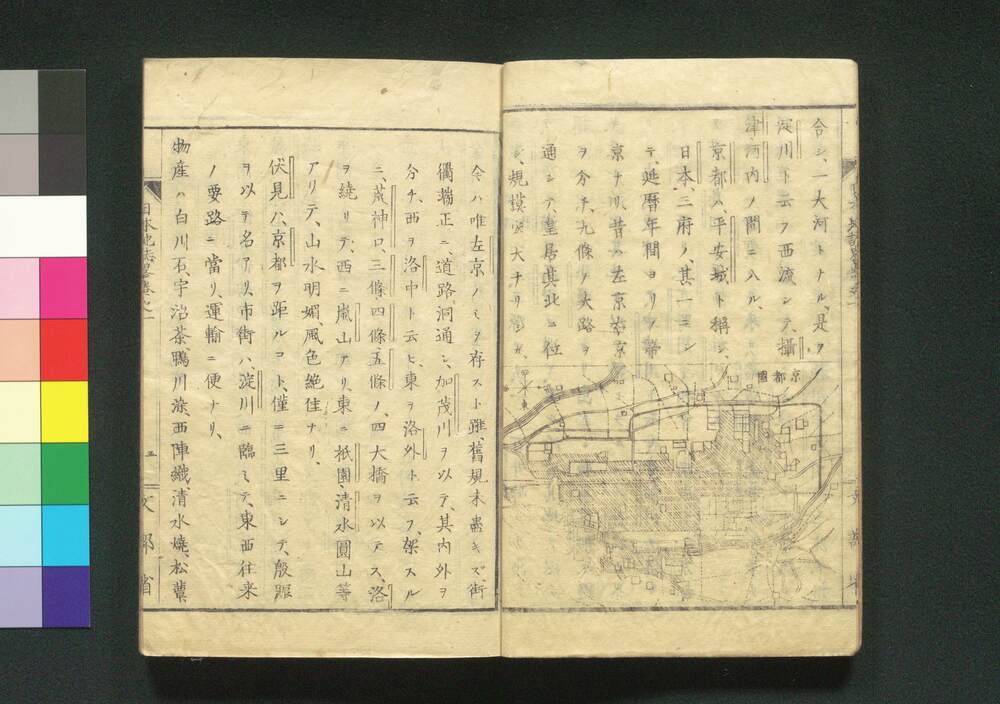 合シ、一大河トナル、是ヲ
淀川ト云フ西流シテ、攝
津河内ノ間ニ入ル、
京都ハ、平安城ト稱シ、
日本三府ノ、其一ニシ
テ、延暦年間ヨリノ帝
京ナリ、昔ハ左京右京
ヲ分チ、九條ノ大路ヲ
通シテ、皇居其北ニ位
シ、規模宏大ナリシガ、
京都圖
今ハ唯左京ノミヲ存スト雖、舊規未盡キズ、街
衢端正ニ、道路洞通シ、加茂川ヲ以テ、其内外ヲ
分チ、西ヲ洛中ト云ヒ、東ヲ洛外ト云フ、架スル
ニ、荒神口、三條四條、五條ノ、四大橋ヲ以テス、洛
ヲ繞リテ、西ニ嵐山アリ、東ニ祇園、清水圓山等
アリテ、山水明媚、風色絶佳ナリ、
伏見ハ、京都ヲ距ルコト、僅ニ三里ニシテ、殷賑
ヲ以テ名アリ、市街ハ、淀川ニ臨ミテ、東西往来
ノ要路ニ當リ、運輸ニ便ナリ、
物産ハ白川石、宇治茶、鴨川染、西陣織、清水燒、松蕈
日本地誌略卷之一
五
文部省